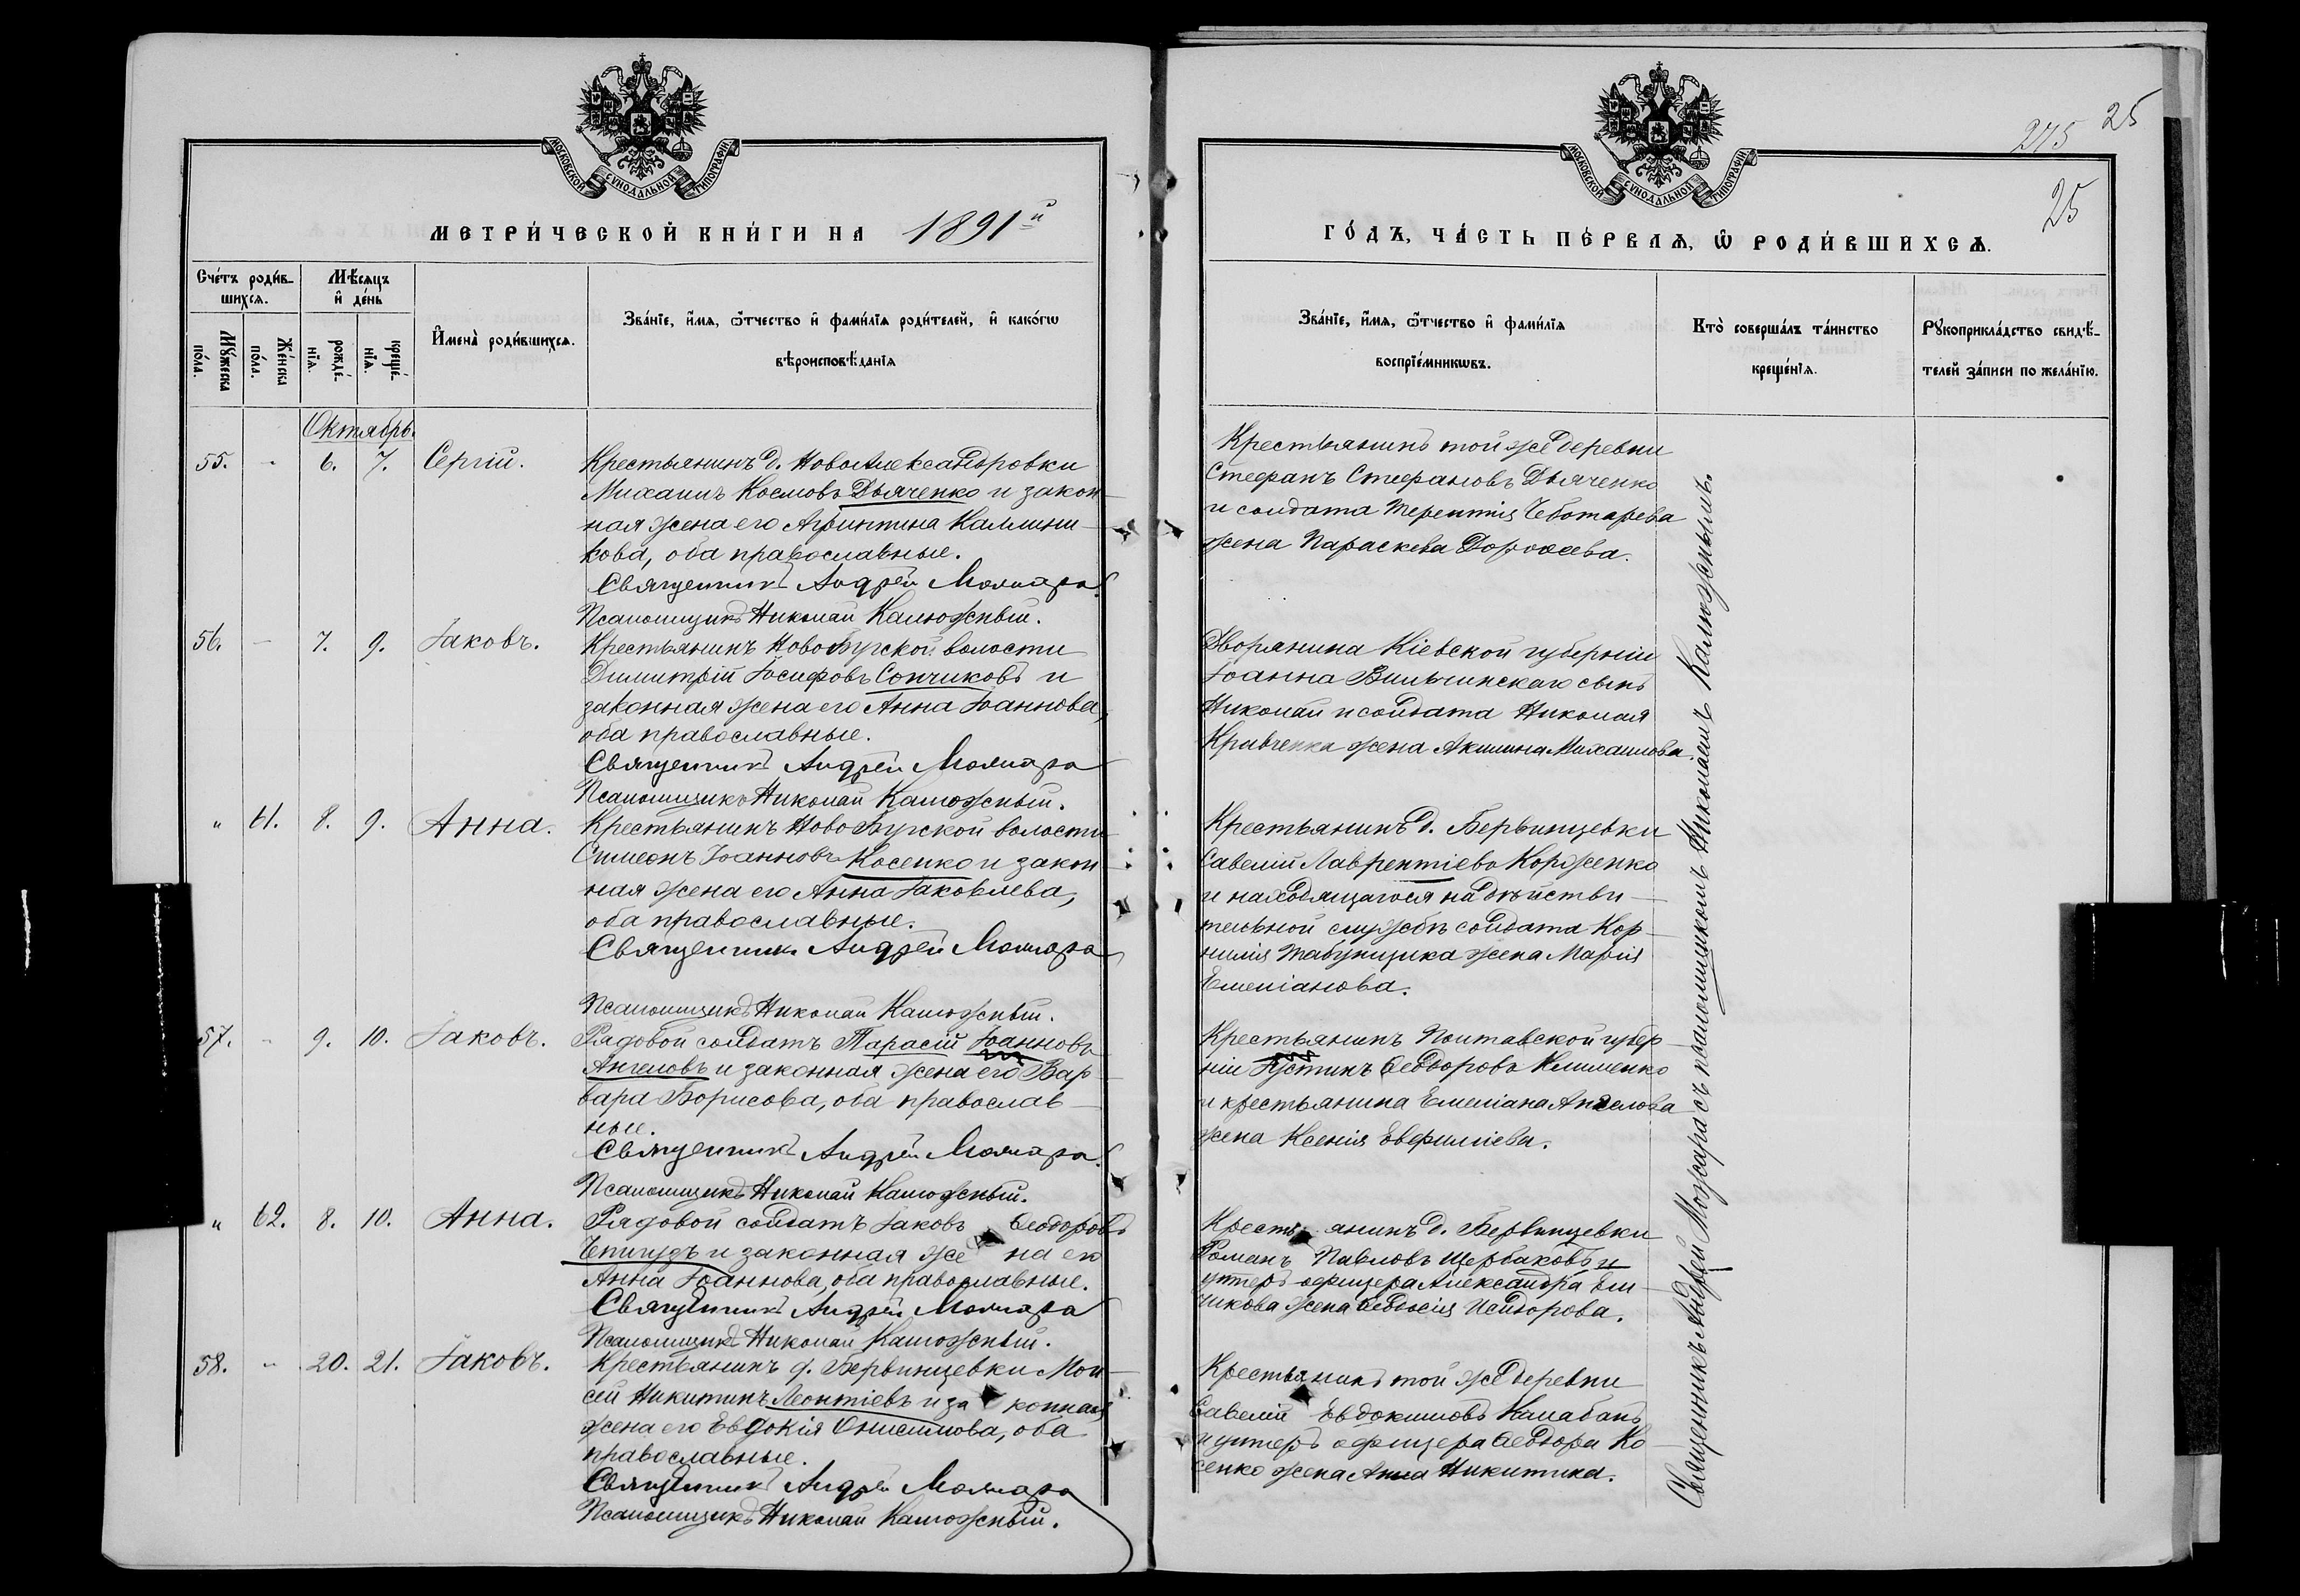 МОСКОВСКОЙ СѴНОДАЛЬНОЙ ТИПОГРАФІИ
МЕТРИ́ЧЕСКОЙ КНИ́ГИ НА 1891й
Сче́тъ роди́в-
шихсѧ.
Мꙋ́жеска
по́ла.
Же́нска
по́ла.
Мѣ́сѧцъ
и҆ де́нь
рожде́-
нїѧ.
креще́-
нїѧ.
И҆мена̀ роди́вшихсѧ.
Зва́нїе, и҆́мѧ, ѻ҆́тчество и҆ фами́лїѧ роди́телей, и҆ како́гѡ
вѣроисповѣ́данїѧ
Октябрь.
55. - 6. 7. Сергій.
Крестьянинъ д. НовоАлександровки
Михаилъ Космовъ Дьяченко и закон-
ная жена его Агрипина Каллини-
кова, оба православные.
Священникъ Андрей Можара
Псаломщикъ Николай Калюжный.
56. - 7. 9. Іаковъ.
Крестьянинъ НовоБугской волости
Димитрій Іосифовъ Сопчиковъ и
законная жена его Анна Іоаннова,
оба православные.
Священникъ Андрей Можара
Псаломщикъ Николай Калюжный.
" 61. 8. 9. Анна.
Крестьянинъ НовоБугской волости
Симеонъ Іоанновъ Косенко и закон-
ная жена его Анна Іаковлева,
оба православные.
Священникъ Андрей Можара
Псаломщикъ Николай Калюжный.
57. - 9. 10. Іаковъ.
Рядовой солдатъ Тарасій Іоанновъ
Ангеловъ и законная жена его Вар-
вара Борисова, оба православ-
ные.
Священникъ Андрей Можара
Псаломщикъ Николай Калюжный.
" 62. 8. 10. Анна.
Рядовой солдатъ Іаковъ Ѳеодоровъ
и законная жена его
Анна Іоаннова, оба православные.
Священникъ Андрей Можара
Псаломщикъ Николай Калюжный.
58. - 20. 21. Іаковъ.
Крестьянинъ д. Бервинцевки Мои-
сей Никитинъ Леонтіевъ и законная
жена его Евдокія Онисимова, оба
православные.
Священникъ Андрей Можара
Псаломщикъ Николай Калюжный.
275 25
25
МОСКОВСКОЙ СѴНОДАЛЬНОЙ ТИПОГРАФІИ
ГО́ДЪ, ЧА́СТЬ ПЕ́РВАѦ, Ѡ҆ РОДИ́ВШИХСѦ.
Зва́нїе, и҆́мѧ, ѻ҆́тчество и҆ фами́лїѧ
воспрїе́мникѡвъ.
Кто̀ соверша́лъ та́инство
креще́нїѧ.
Рꙋкоприкла́дство свидѣ́-
телей за́писи по жела́нїю.
Крестьянинъ той же деревни
Стефанъ Стефановъ Дьяченко
и солдата Терентія Чеботарева
жена Параскева Дорофеева.
Дворянина Кіевской губерніи
Іоанна Вильчинскаго сынъ
Николай и солдата Николая
Кравченка жена Акилина Михаилова.
Крестьянинъ д. Бервинцевки
Савелій Лаврентіевъ Корженко
и находящагося на дѣйстви-
тельной службѣ солдата Кор-
нилія Табунщика жена Марія
Емеліанова.
Крестьянинъ Полтавской губер-
ніи Іустинъ Ѳеодоровъ Клименко
и крестьянина Емеліана Ангелова
жена Ксенія Евфиміева.
Крестьянинъ д. Бервинцевки
Романъ Павловъ Щербаковъ и
унтеръ офицера Александра Ели-
чикова жена Ѳеодосія Исидорова.
Крестьянинъ той же деревни
Савелій Евдокимовъ Калабанъ
и унтеръ офицера Ѳеодора Ко-
сенко жена Анна Никитина.
Священникъ Андрей Можара съ псаломщикомъ Николаемъ Калюжнымъ.